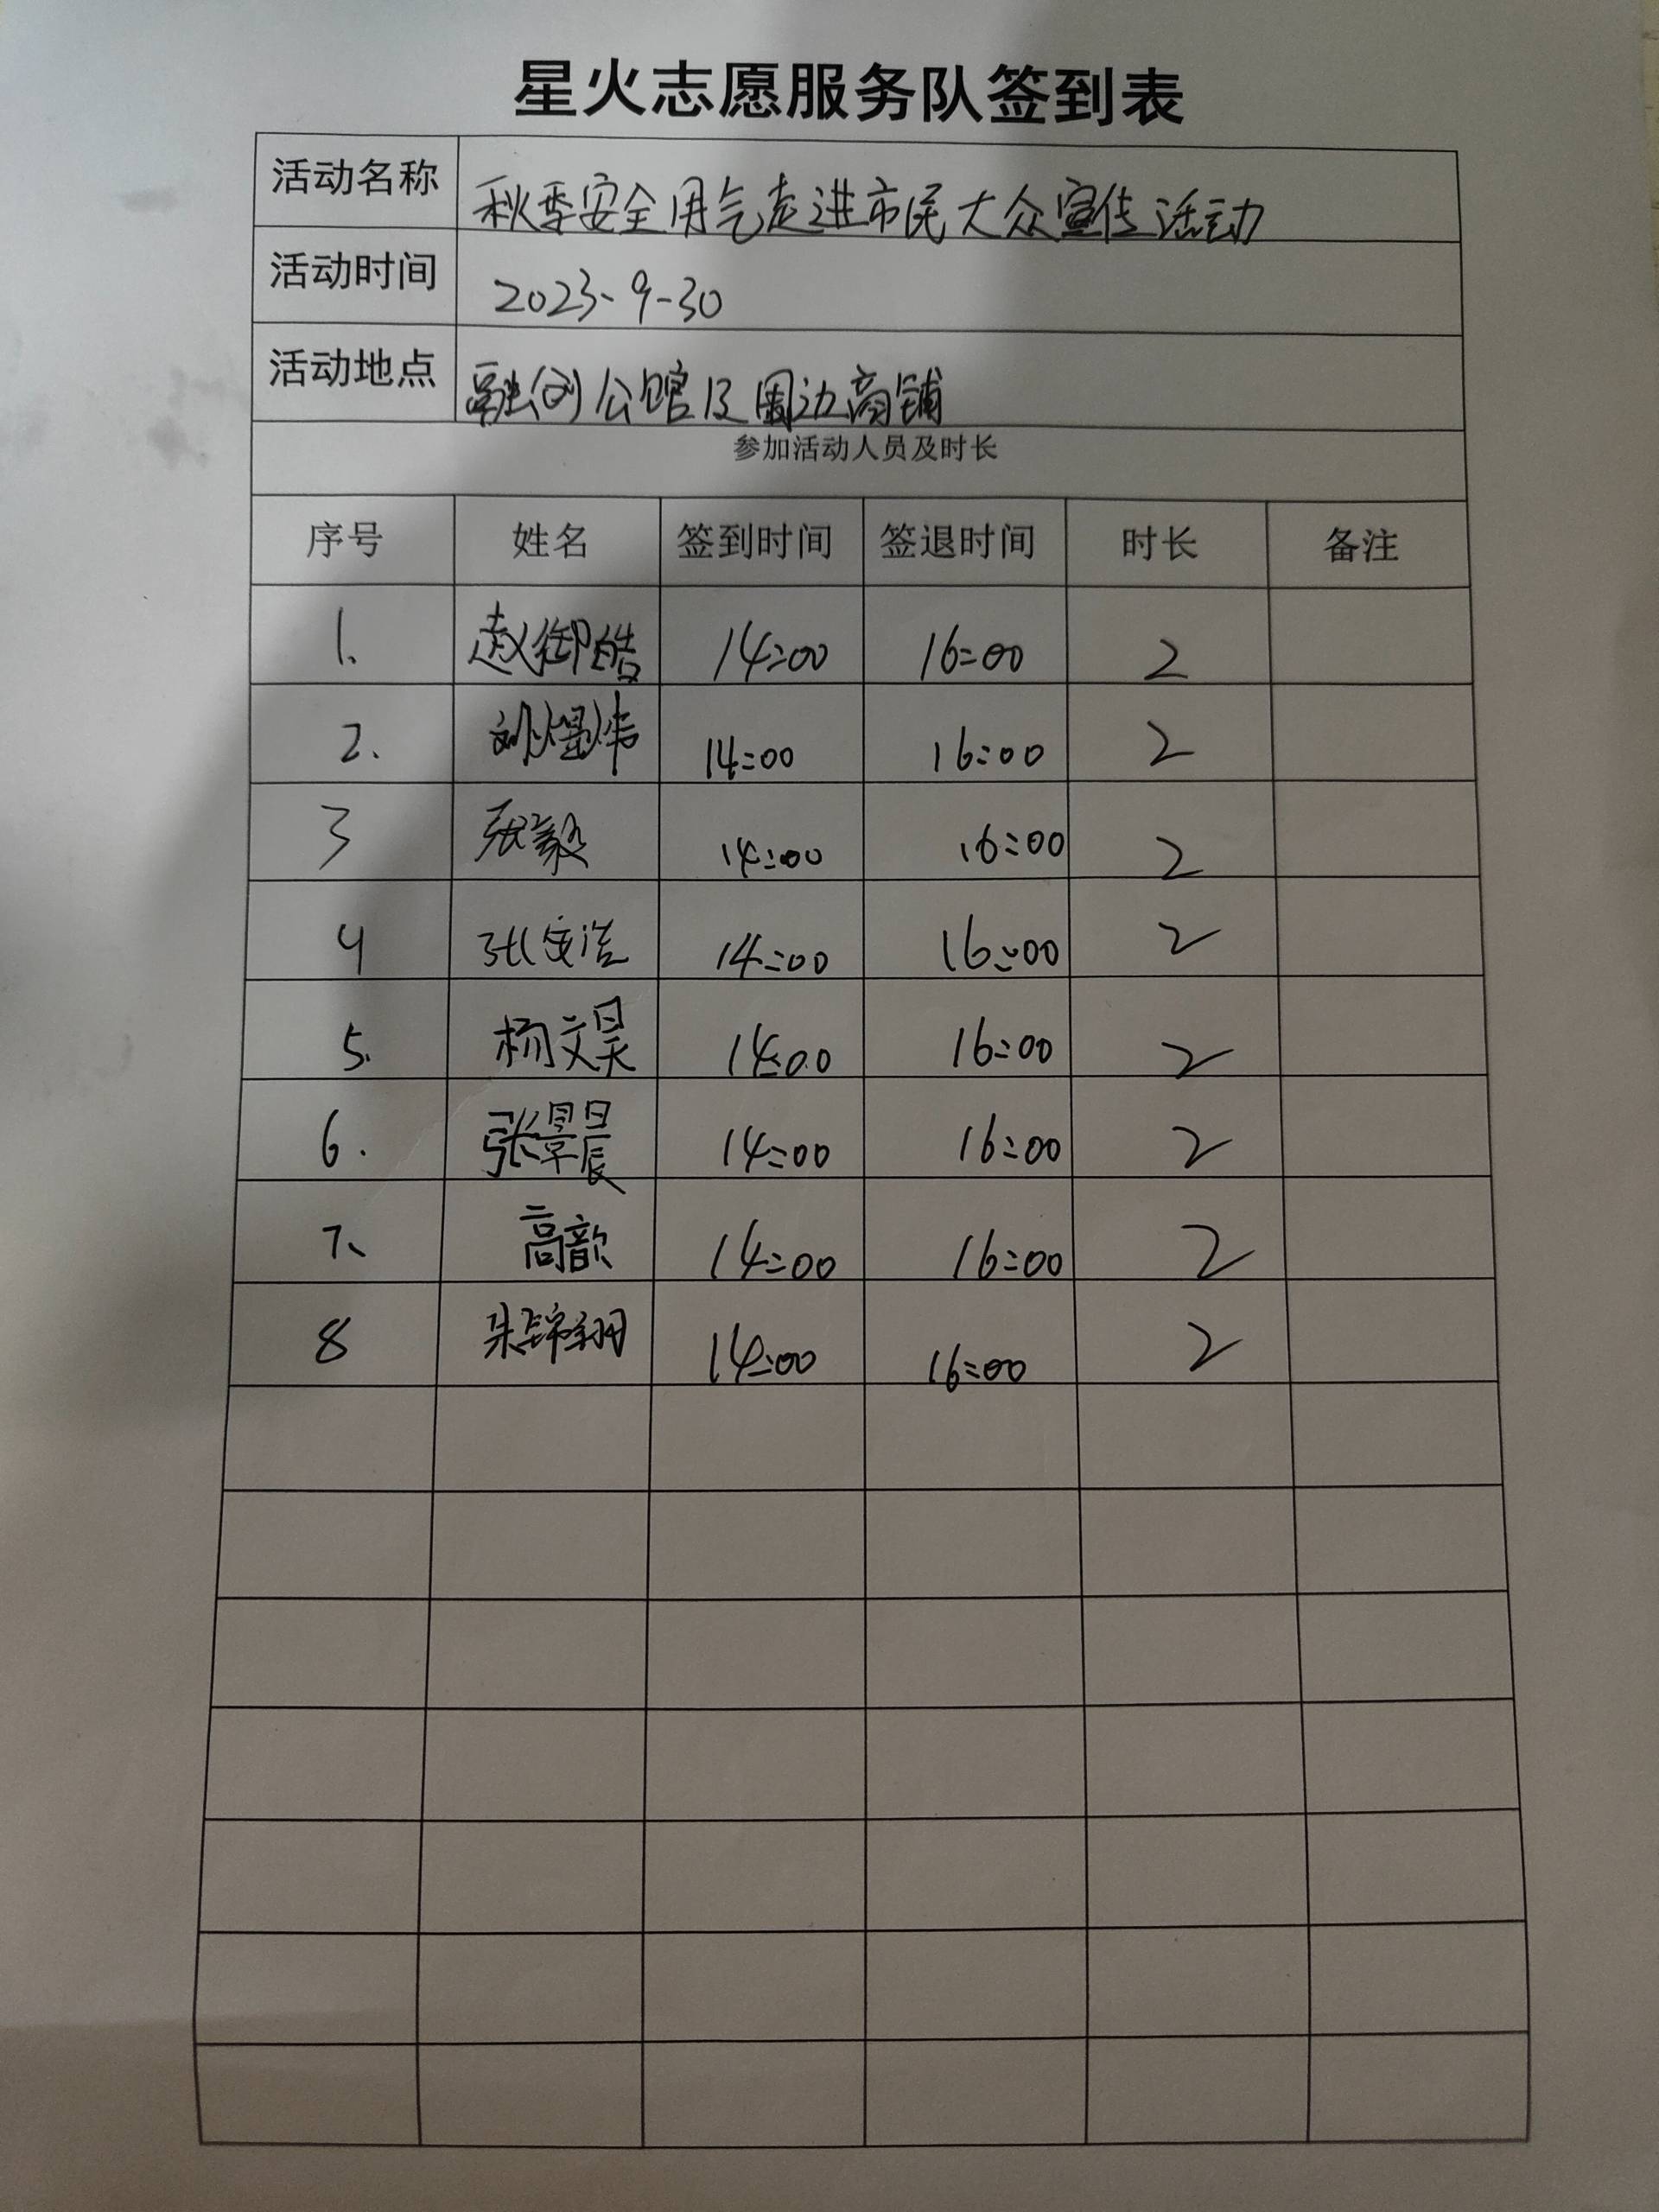 星火志愿服务队签到表
活动名称 秋季安全用气走进市民大众宣传活动
活动时间 2023-9-30
活动地点 融创公馆及周边商铺
参加活动人员及时长
序号 姓名 签到时间 签退时间 时长 备注
1、 赵御皓 14:00 16:00 2
2. 刘煜炜 14:00 16:00 2
3 张毅 14:00 16:00 2
4 张 洁 14:00 16:00 2
5. 杨文昊 14:00 16:00 2
6. 张景晨 14:00 16:00 2
7、 高歆 14:00 16:00 2
8 朱锦翔 14:00 16:00 2